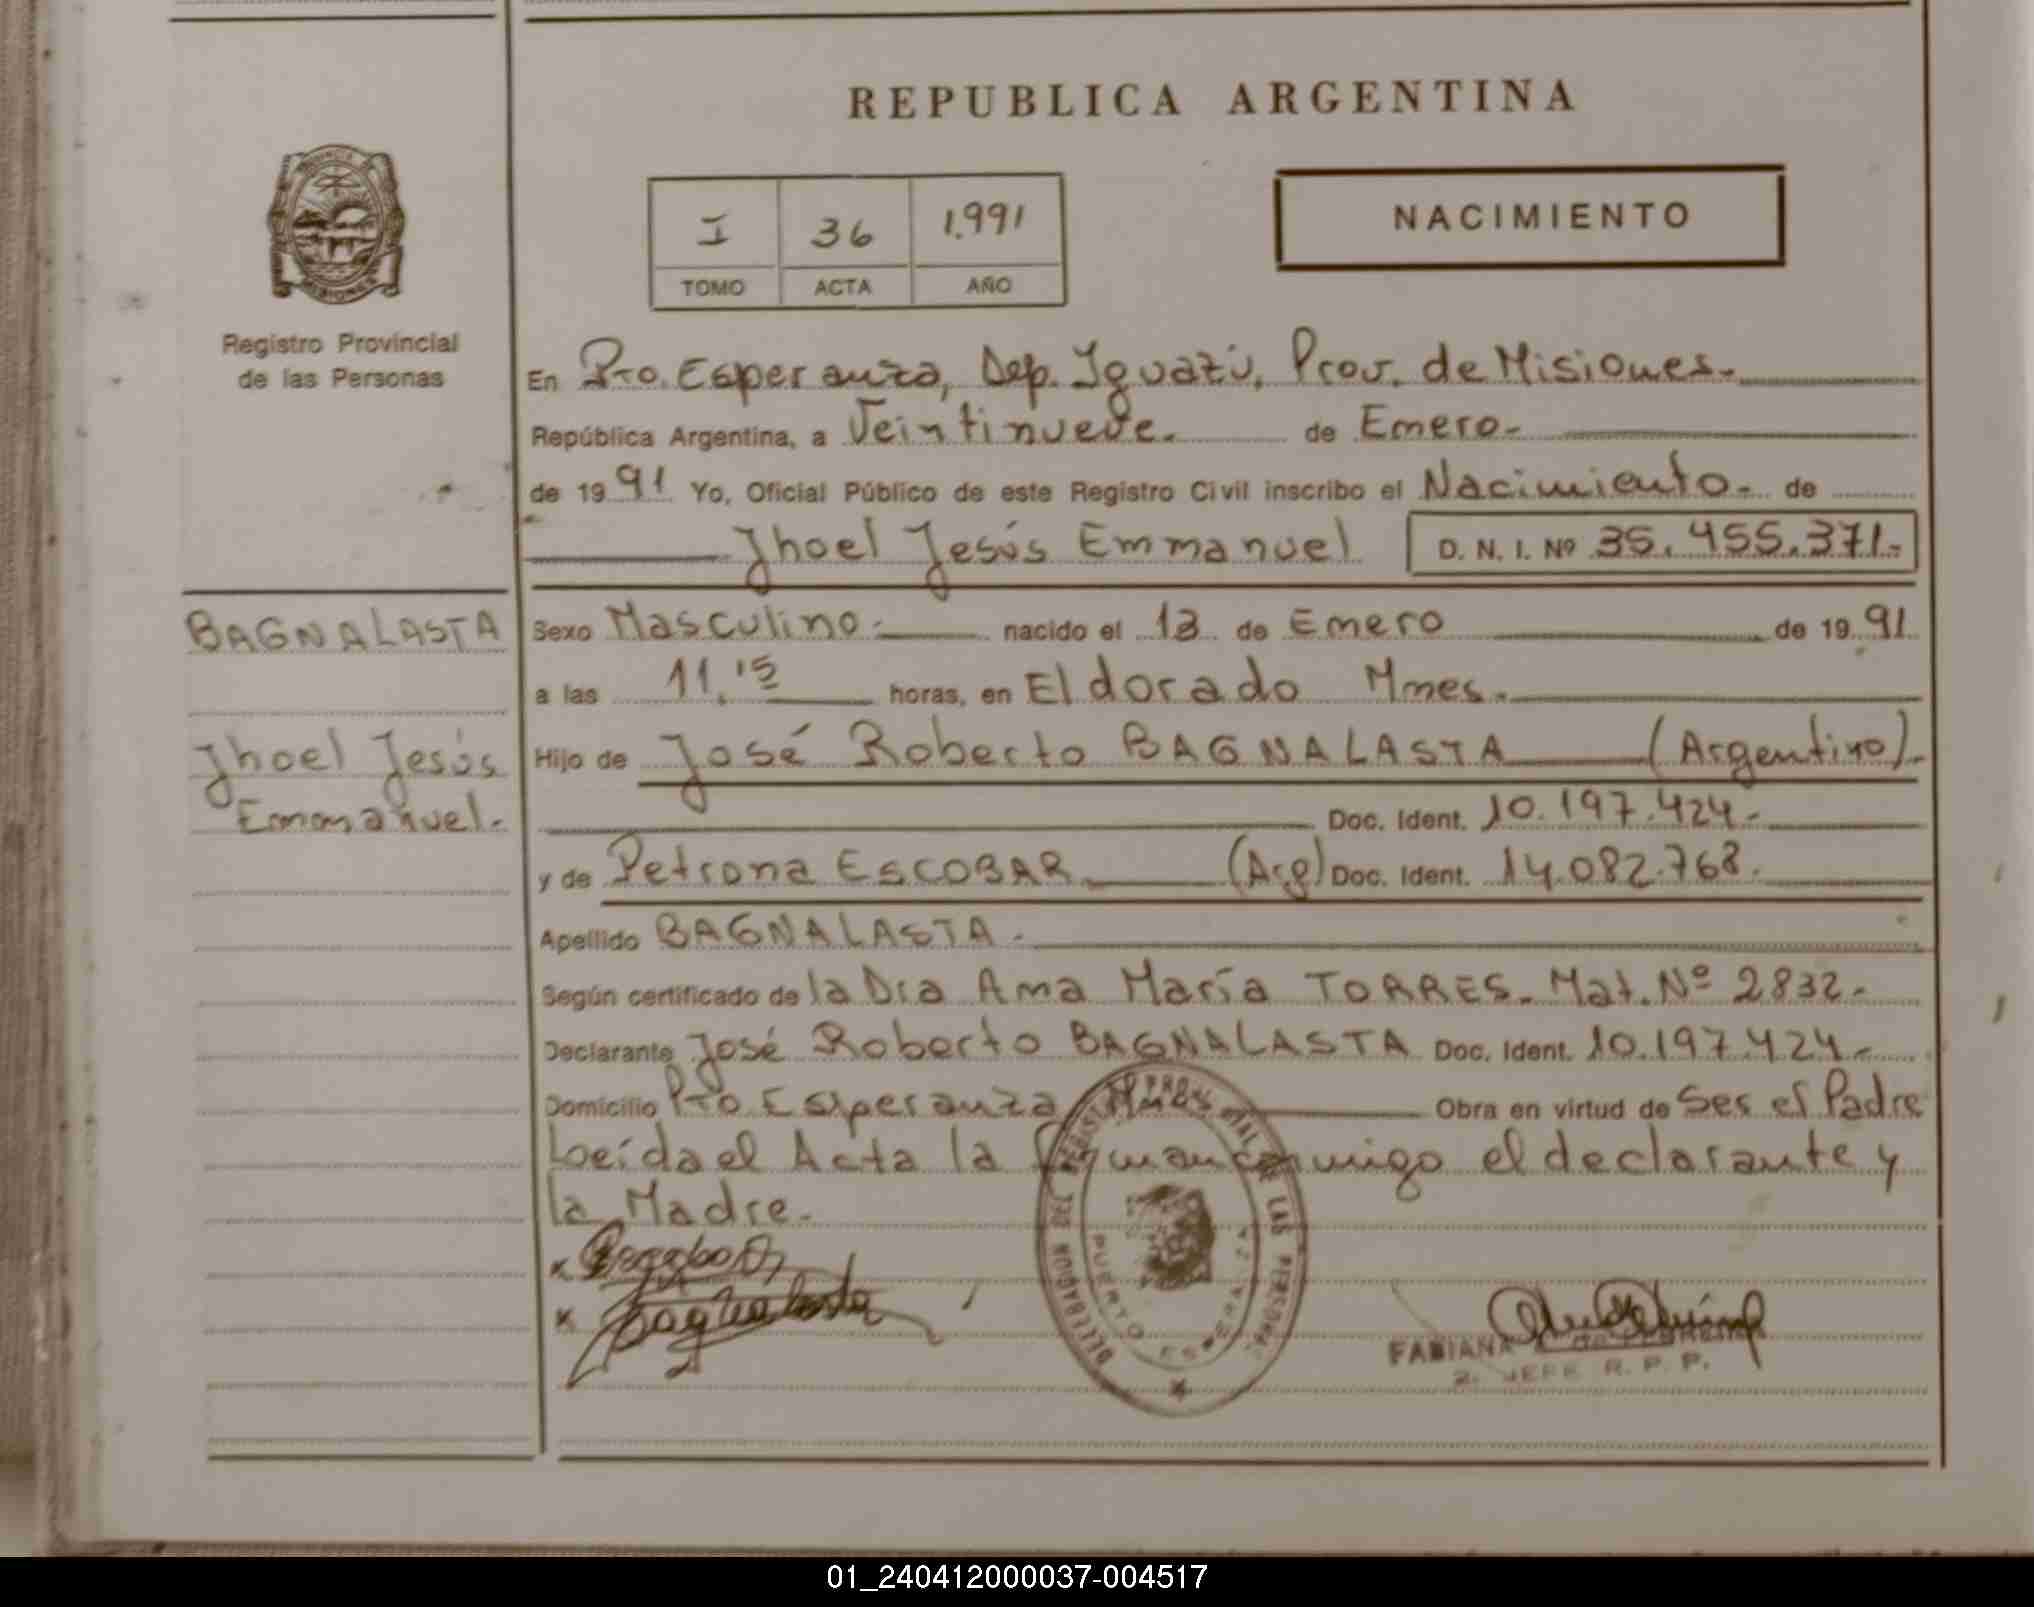 REPUBLICA ARGENTINA
I 36 1.991
TOMO ACTA AÑO
NACIMIENTO
Registro Provincial
de las Personas
En Pto. Esperanza, Dep. Iguazú, Prov. de Misiones.-
República Argentina, a Veintinueve. de Enero-
de 1991 Yo, Oficial Público de este Registro Civil inscribo el Nacimiento.- de
Jhoel Jesús Emmanuel D. N. I. Nº 35.455.371.-
BAGNALASTA
Jhoel Jesús
Emmanuel.-
Sexo Masculino.- nacido el 13 de Enero de 1991
a las 11,15 horas, en Eldorado Mnes.-
Hijo de José Roberto BAGNALASTA (Argentino).-
Doc. Ident. 10.197.424.-
y de Petrona ESCOBAR (Arg) Doc. Ident. 14.082.768.
Apellido BAGNALASTA.-
Según certificado de la Dra Ana María TORRES. Mat. Nº 2832.-
Declarante José Roberto BAGNALASTA Doc. Ident. 10.197.424.-
Domicilio Pto Esperanza Mnes Obra en virtud de Ser el Padre
Leída el Acta la firman conmigo el declarante y
la Madre.-
DELEGACION DEL REGISTRO PROVINCIAL DE LAS PERSONAS
PUERTO ESPERANZA
x
x Bagnalasta
FABIANA
2. JEFE R. P. P.
01_240412000037-004517